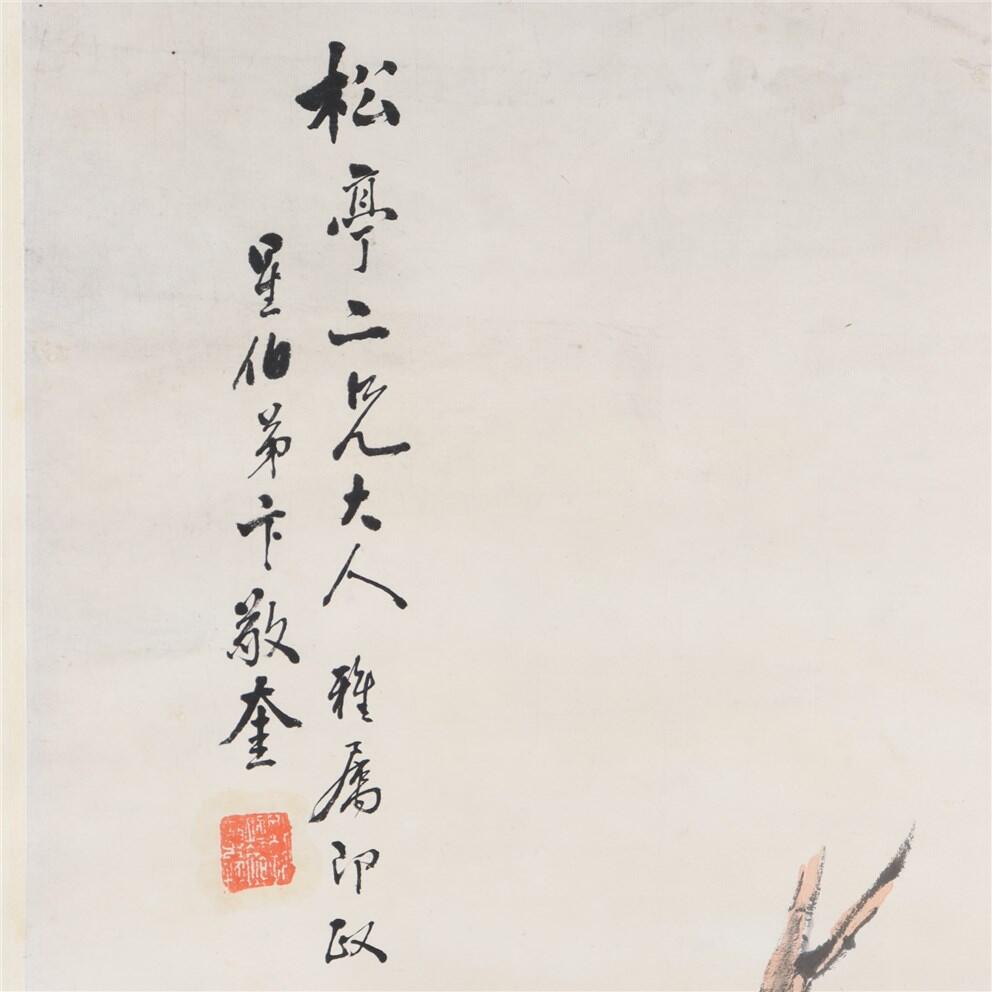 松亭二兄大人雅屬即政
星伯弟卞敬奎